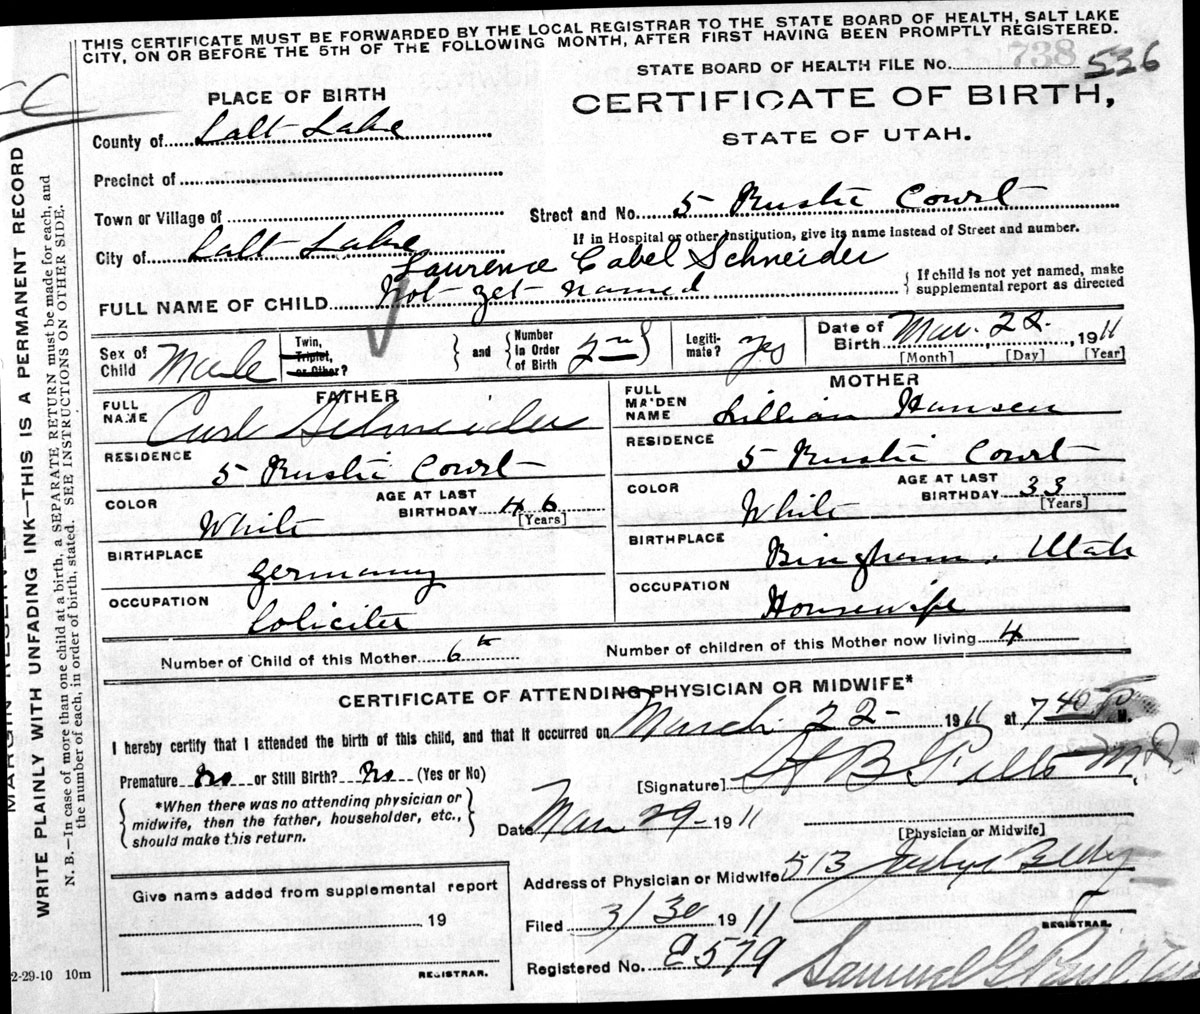 THIS CERTIFICATE MUST BE FORWARDED BY THE LOCAL REGISTRAR TO THE STATE BOARD OF HEALTH, SALT LAKE
CITY, ON OR BEFORE THE 5TH OF THE FOLLOWING MONTH, AFTER FIRST HAVING BEEN PROMPTLY REGISTERED.
STATE BOARD OF HEALTH FILE No. 738 536
PLACE OF BIRTH
CERTIFICATE OF BIRTH,
STATE OF UTAH.
County of Salt Lake
Precinct of
Town or Village of
Street and No. 5 Rustic Court
City of Salt Lake
If in Hospital or other Institution, give its name instead of Street and number.
Laurence Cabel Schneider
FULL NAME OF CHILD Not yet named
{ If child is not yet named, make
supplemental report as directed
Sex of Child Male
Twin, Triplet, or Other?
and
Number in Order of Birth 2nd
Legiti-mate? yes
Date of Birth Mar. 22. 1911
[Month] [Day] [Year]
FATHER
FULL NAME Curt Schneider
RESIDENCE
5 Rustic Court
COLOR White
AGE AT LAST BIRTHDAY 46 [Years]
BIRTHPLACE
Germany
OCCUPATION
Soliciter
MOTHER
FULL MAIDEN NAME Lillian Hansen
RESIDENCE
5 Rustic Court
COLOR White
AGE AT LAST BIRTHDAY 33 [Years]
BIRTHPLACE
Bingham, Utah
OCCUPATION
Housewife
Number of Child of this Mother 6th
Number of children of this Mother now living 4
CERTIFICATE OF ATTENDING PHYSICIAN OR MIDWIFE*
I hereby certify that I attended the birth of this child, and that it occurred on March 22 - 1911 at 7 40 P M.
Premature No or Still Birth? No (Yes or No)
[Signature] M.D.
*When there was no attending physician or
midwife, then the father, householder, etc.,
should make this return.
Date Mar 29 - 1911
[Physician or Midwife]
Address of Physician or Midwife 513 Judge Bldg
Give name added from supplemental report
19
REGISTRAR.
Filed 3/30 1911
REGISTRAR.
Registered No. E579
Samuel G
2-29-10 10m
MARGIN RESERVED
WRITE PLAINLY WITH UNFADING INK—THIS IS A PERMANENT RECORD
N. B.—In case of more than one child at a birth, a SEPARATE RETURN must be made for each, and
the number of each, in order of birth, stated. SEE INSTRUCTIONS ON OTHER SIDE.